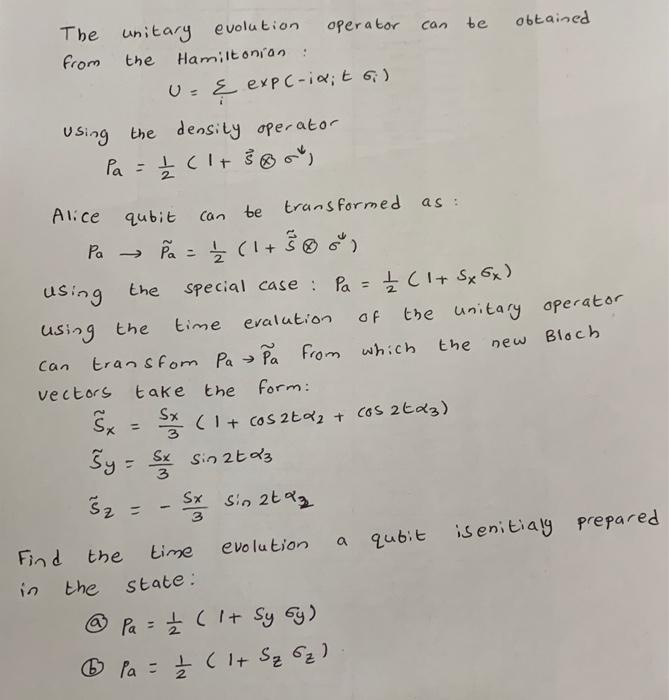 The unitary evolution operator can be obtained
from the Hamiltonian :
U = Σᵢ exp(-iαᵢt σᵢ)
Using the density operator
Pa = 1/2 (1 + s⃗ ⊗ σ↓)
Alice qubit can be transformed as :
Pa → P̃a = 1/2 (1 + s̃⃗ ⊗ σ↓)
using the special case : Pa = 1/2 (1 + Sx σx)
using the time evalution of the unitary operator
can transfom Pa → P̃a from which the new Bloch
vectors take the form:
S̃x = Sx/3 (1 + cos 2tα₂ + cos 2tα₃)
S̃y = Sx/3 sin 2tα₃
S̃z = - Sx/3 sin 2tα₂
Find the time evolution a qubit isenitialy prepared
in the state:
ⓐ Pa = 1/2 (1 + Sy σy)
ⓑ Pa = 1/2 (1 + Sz σz)